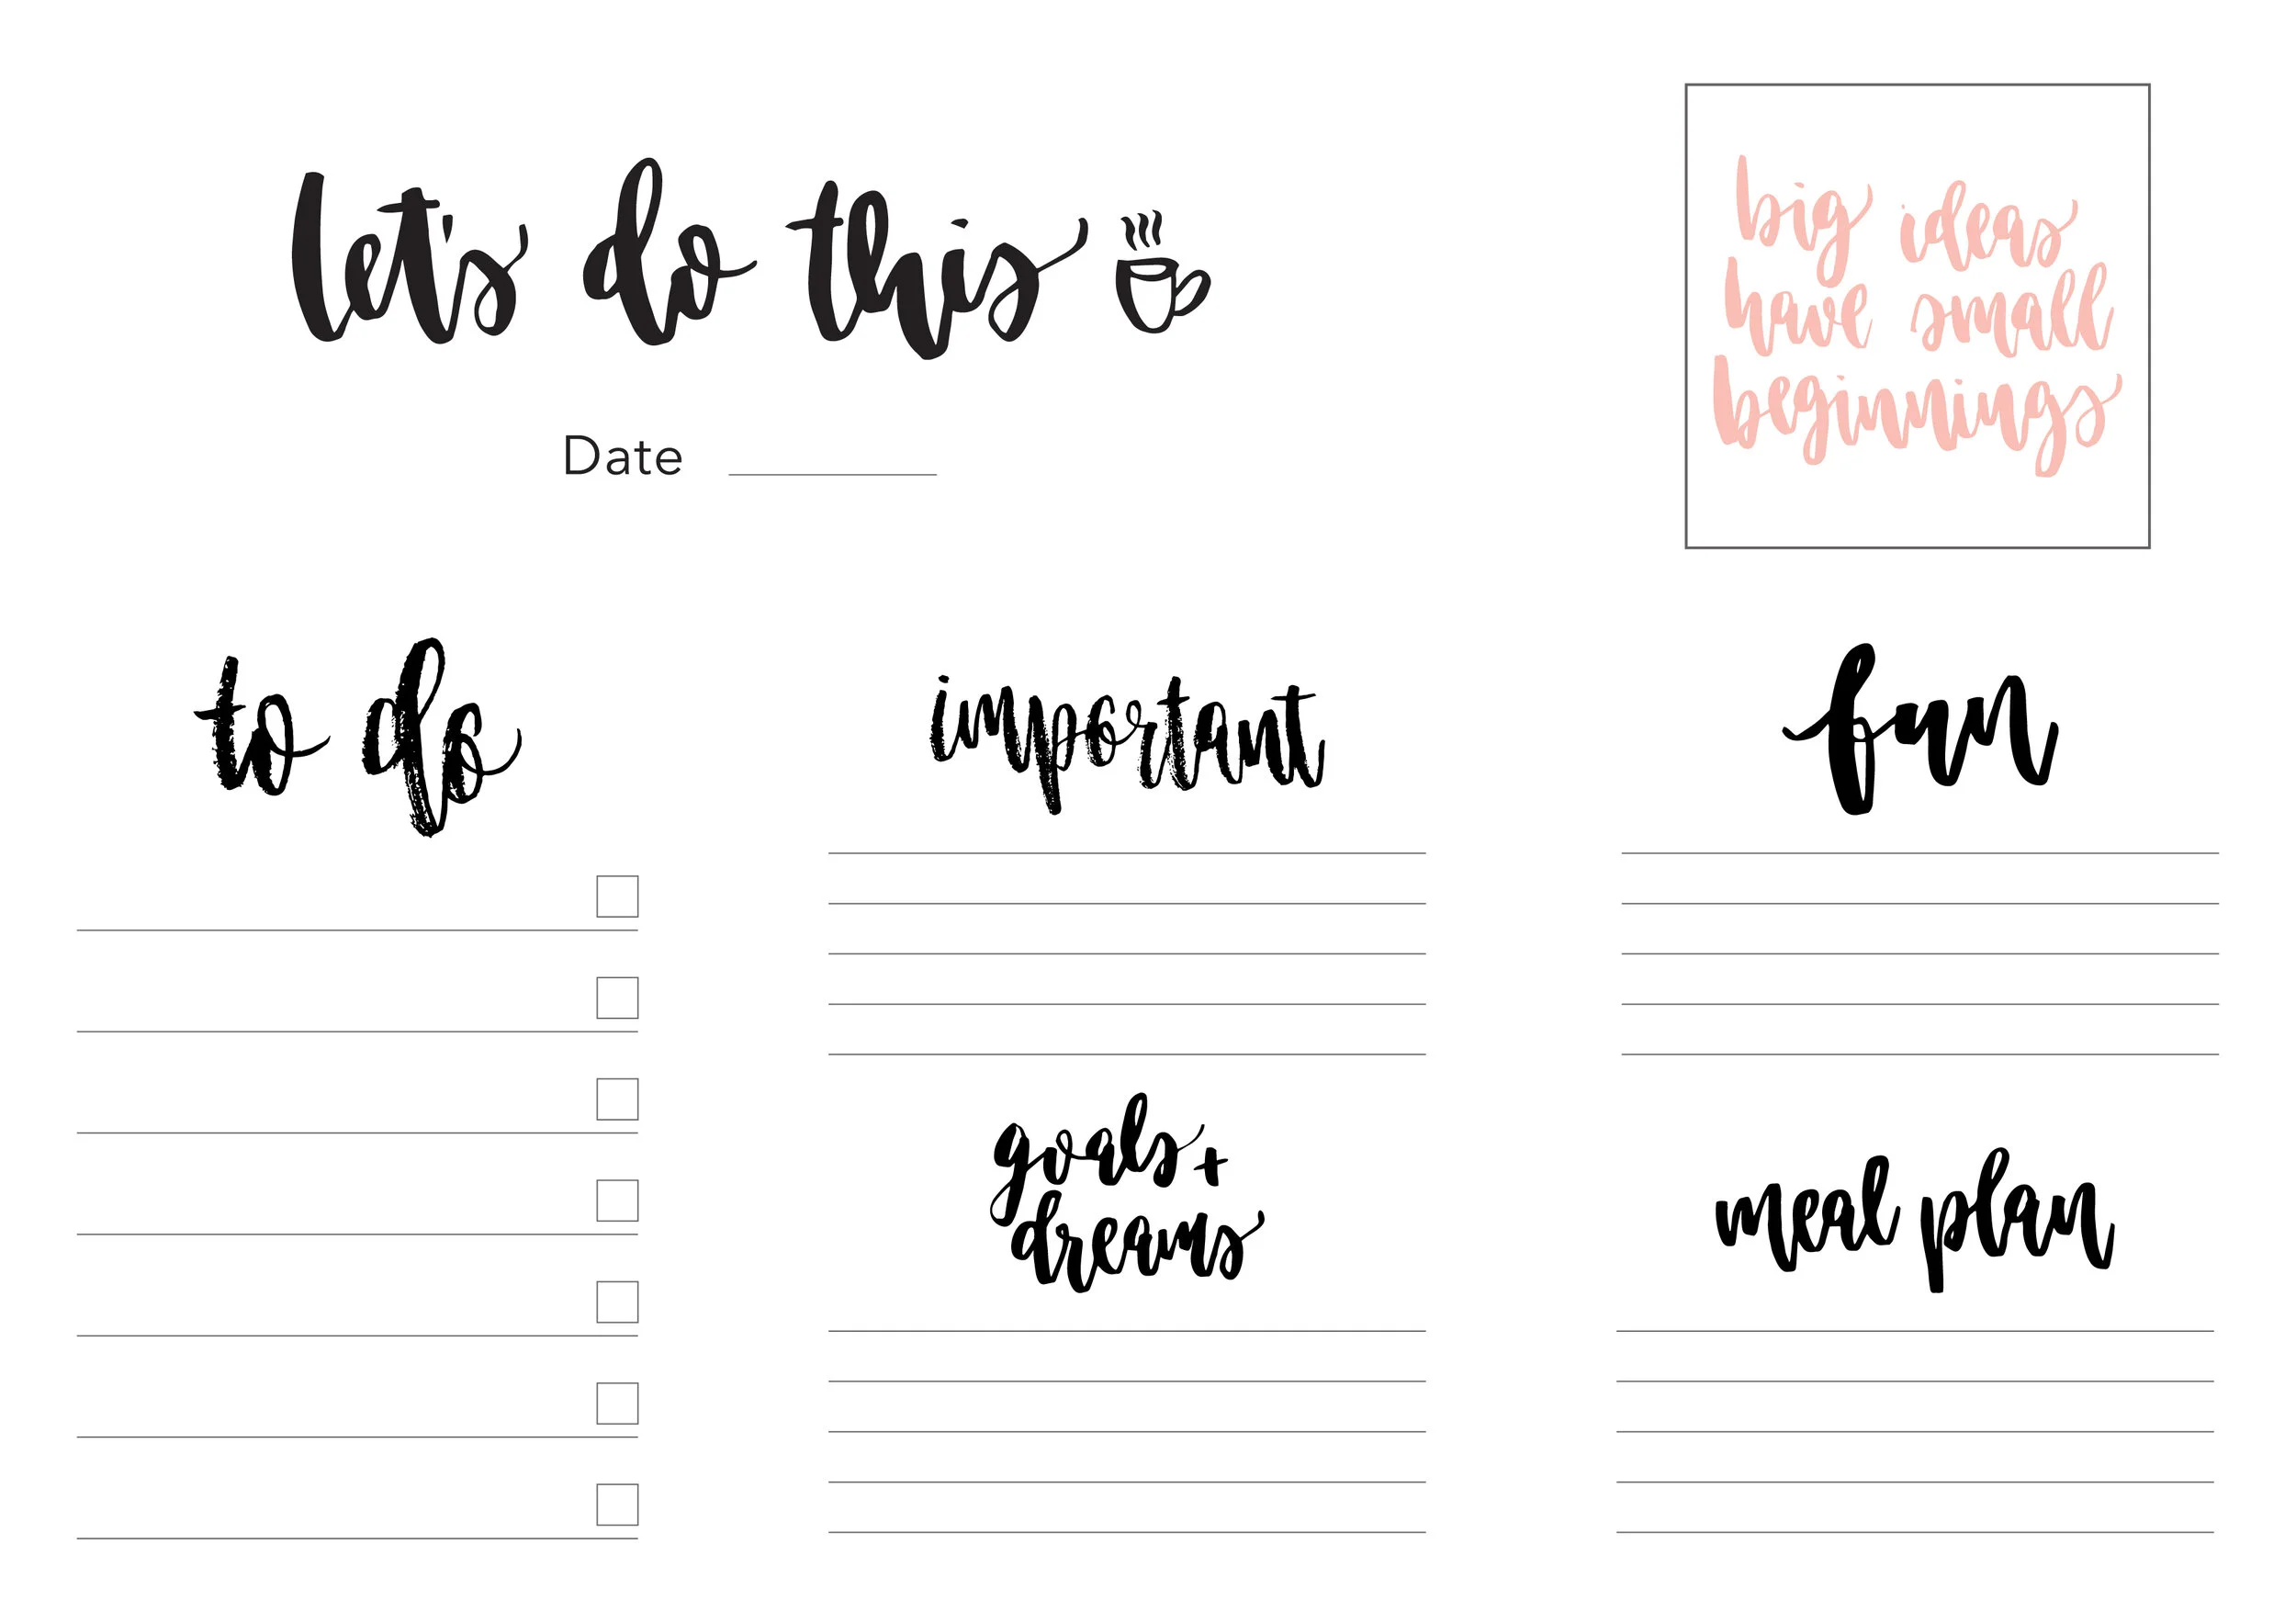 let's do this
Date
big ideas
have small
beginnings
to do
important
fun
goals +
dreams
meal plan